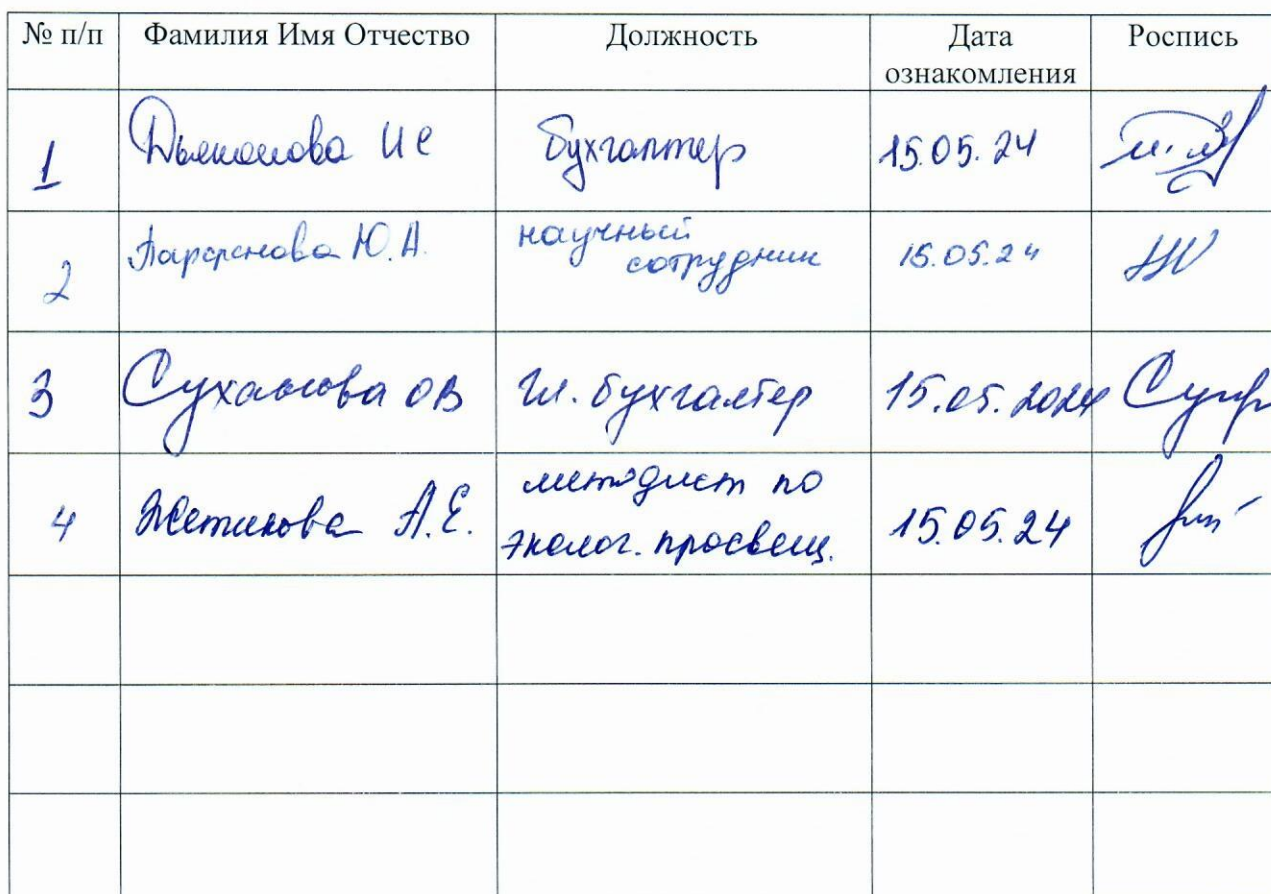 № п/п Фамилия Имя Отчество Должность Дата ознакомления Роспись
1 Дьяконова И С бухгалтер 15.05.24
2 Парфенова Ю.А. научный сотрудник 15.05.24
3 Суханова ОВ Гл. бухгалтер 15.05.2024
4 А.Е. методист по
эколог. просвещ. 15.05.24